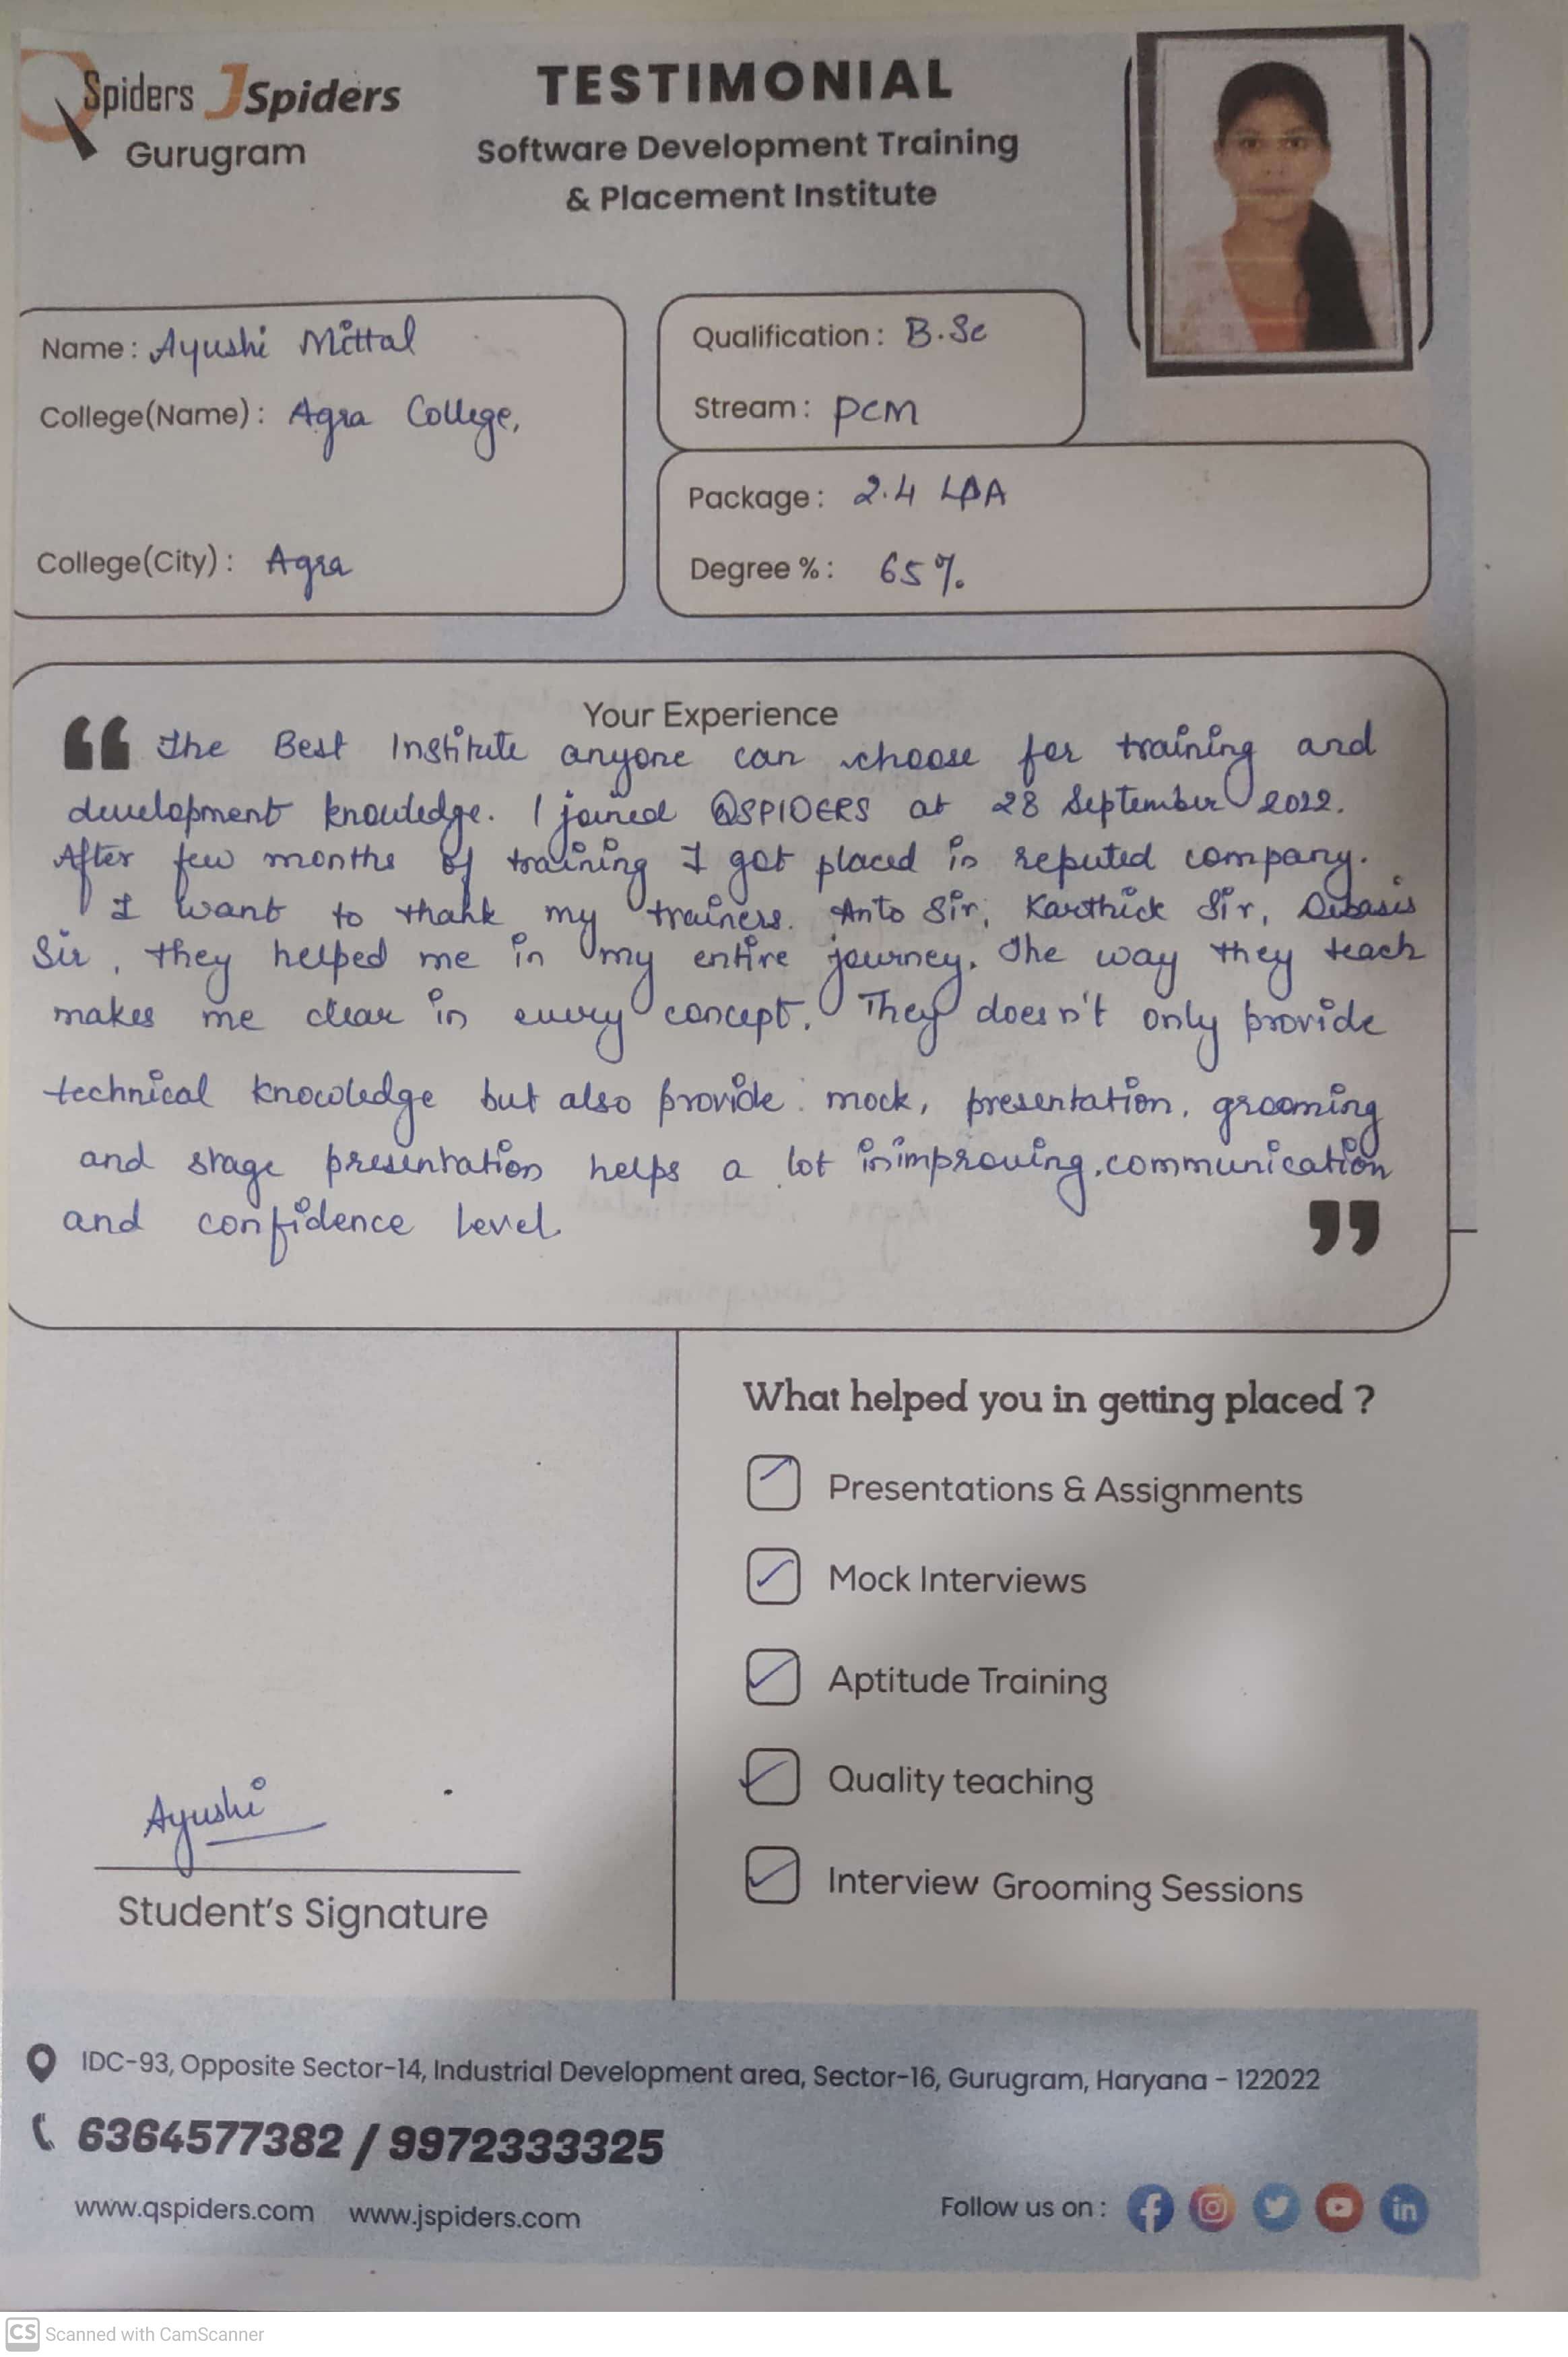 QSpiders JSpiders
Gurugram
TESTIMONIAL
Software Development Training
& Placement Institute
Name : Ayushi Mittal
College(Name) : Agra College,
College(City) : Agra
Qualification : B.Sc
Stream : PCM
Package : 2.4 LPA
Degree % : 65%
Your Experience
“ The Best Institute anyone can choose for training and
development knowledge. I joined QSPIDERS at 28 September 2022.
After few months of training I got placed in reputed company.
I want to thank my trainers. Anto Sir, Karthick Sir, Debasis
Sir, they helped me in my entire journey. The way they teach
makes me clear in every concept. They doesn't only provide
technical knowledge but also provide mock, presentation, grooming
and stage presentation helps a lot in improving, communication
and confidence level. ”
What helped you in getting placed ?
Presentations & Assignments
Mock Interviews
Aptitude Training
Quality teaching
Interview Grooming Sessions
Ayushi
Student's Signature
IDC-93, Opposite Sector-14, Industrial Development area, Sector-16, Gurugram, Haryana - 122022
6364577382 / 9972333325
www.qspiders.com www.jspiders.com
Follow us on :
CS Scanned with CamScanner